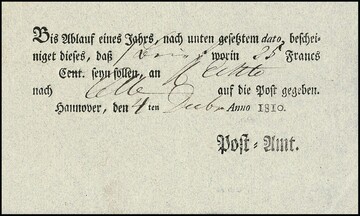 Bis Ablauf eines Jahrs, nach unten gesetztem dato, beschei-
niget dieses, daß worin 25 Francs
Cent. seyn sollen, an
nach Celle auf die Post gegeben.
Hannover, den 4 ten Anno 1810.
Post-Amt.